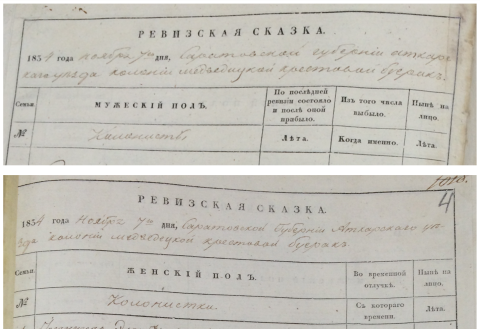 РЕВИЗСКАЯ СКАЗКА.
1854 года ноября 7го дня, Саратовской губернии аткар
скаго уезда колонии медведицкой крестовай буеракъ
Семьи.
МУЖЕСКІЙ ПОЛЪ.
По последней ревизіи состояло и после оной прибыло.
Изъ того числа выбыло.
Ныне на лицо.
№
Колонистъ
Лѣта.
Когда именно.
Лѣта.
1018.
4
РЕВИЗСКАЯ СКАЗКА.
1854 года Ноября 7го дня, Саратовской Губерніи Аткарскаго уе-
зда колоніи медведецкой крестовай буеракъ
Семьи.
ЖЕНСКІЙ ПОЛЪ.
Во временной отлучкѣ.
Нынѣ на лицо.
№
Колонистки.
Съ котораго времени.
Лѣта.